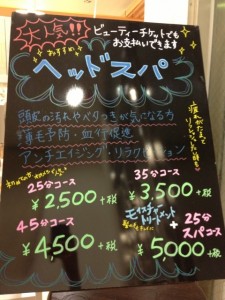 大人気!!
ビューティーチケットでも
お支払いできます
おすすめ
ヘッドスパ
頭皮の汚れやベタつきが気になる方
薄毛予防・血行促進
アンチエイジング・リラクゼーション
疲れがたまって
25分コース
¥2,500+税
35分コース
¥3,500+税
45分コース
¥4,500+税
モイスチャー
トリートメント
+
25分
スパコース
¥5,000+税